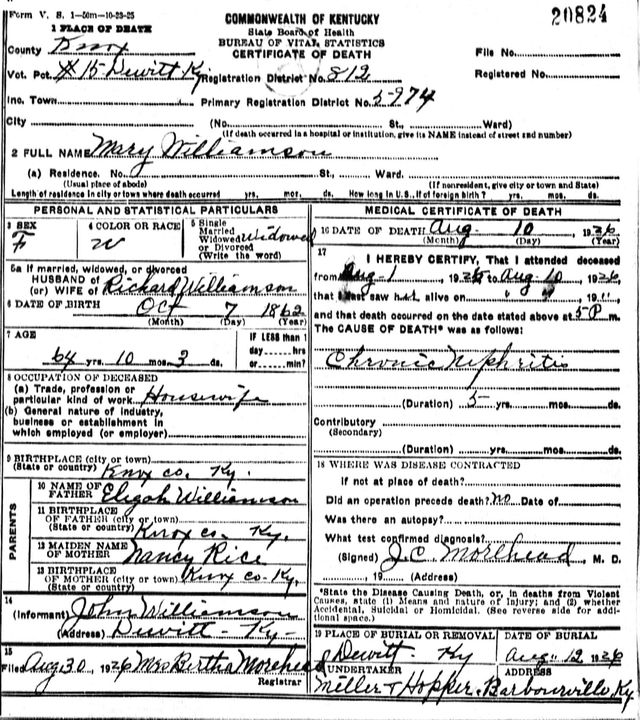 Form V. S. 1—50m—10-23-25
COMMONWEALTH OF KENTUCKY
State Board of Health
BUREAU OF VITAL STATISTICS
CERTIFICATE OF DEATH
20824
1 PLACE OF DEATH
County Knox
File No.
Vot. Pct. #15 Dewitt Ky Registration District No. 812
Registered No.
Inc. Town Primary Registration District No. 5974
City (No. St., Ward)
(If death occurred in a hospital or institution, give its NAME instead of street and number)
2 FULL NAME Mary Williamson
(a) Residence. No. St., Ward.
(Usual place of abode) (If nonresident, give city or town and State)
Length of residence in city or town where death occurred yrs. mos. ds. How long in U.S., if of foreign birth? yrs. mos. ds.
PERSONAL AND STATISTICAL PARTICULARS
3 SEX F
4 COLOR OR RACE W
5 Single Married Widowed or Divorced (Write the word) Widowed
5a If married, widowed, or divorced
HUSBAND of
(or) WIFE of Richard Williamson
6 DATE OF BIRTH Oct 7 1862
(Month) (Day) (Year)
7 AGE
64 yrs. 10 mos. 3 ds.
IF LESS than 1 day----hrs or----min?
8 OCCUPATION OF DECEASED
(a) Trade, profession or
particular kind of work Housewife
(b) General nature of industry,
business or establishment in
which employed (or employer)
9 BIRTHPLACE (city or town)
(State or country) Knox co. Ky.
PARENTS
10 NAME OF
FATHER Eligah Williamson
11 BIRTHPLACE
OF FATHER (city or town)
(State or country) Knox co. Ky.
12 MAIDEN NAME
OF MOTHER Nancy Rice
13 BIRTHPLACE
OF MOTHER (city or town)
(State or country) Knox co. Ky.
14
(Informant) John Williamson
(Address) Dewitt - Ky -
15
Filed Aug 30, 1926 Mrs Bertha Morehead
Registrar
MEDICAL CERTIFICATE OF DEATH
16 DATE OF DEATH Aug 10, 1926
(Month) (Day) (Year)
17
I HEREBY CERTIFY, That I attended deceased
from Aug-1, 1926 to Aug 10, 1926,
that I last saw h alive on " 9, 19 "
and that death occurred on the date stated above at 5 P m.
The CAUSE OF DEATH* was as follows:
Chronic Niphritis
(Duration) 5 yrs. mos. ds.
Contributory
(Secondary)
(Duration) yrs. mos. ds.
18 WHERE WAS DISEASE CONTRACTED
If not at place of death?
Did an operation precede death? no Date of
Was there an autopsy?
What test confirmed diagnosis?
(Signed) J.C. Morehead, M. D.
, 19 (Address)
*State the Disease Causing Death, or, in deaths from Violent
Causes, state (1) Means and nature of Injury; and (2) whether
Accidental, Suicidal or Homicidal. (See reverse side for addi-
tional space.)
19 PLACE OF BURIAL OR REMOVAL
Dewitt Ky
DATE OF BURIAL
Aug. 12 1926
20 UNDERTAKER ADDRESS
Miller & Hopper, Barbourville, Ky